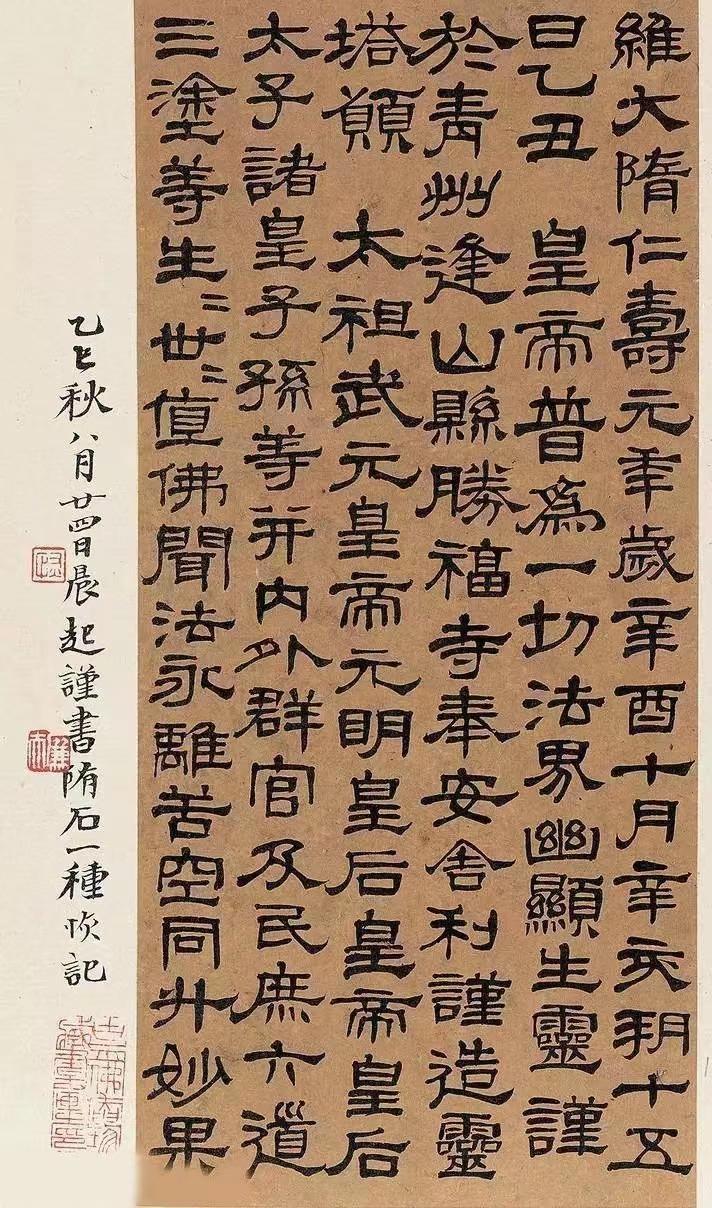 維大隋仁壽元年歲辛酉十月辛亥朔十五
日乙丑 皇帝普為一切法界幽顯生靈謹
於青州逢山縣勝福寺奉安舍利謹造靈
塔願 太祖武元皇帝元明皇后皇帝皇后
太子諸皇子孫等并內外群官及民庶六道
三塗等生〻世〻值佛聞法永離苦空同升妙果
乙巳秋八月廿四日晨起謹書隋石一種 記